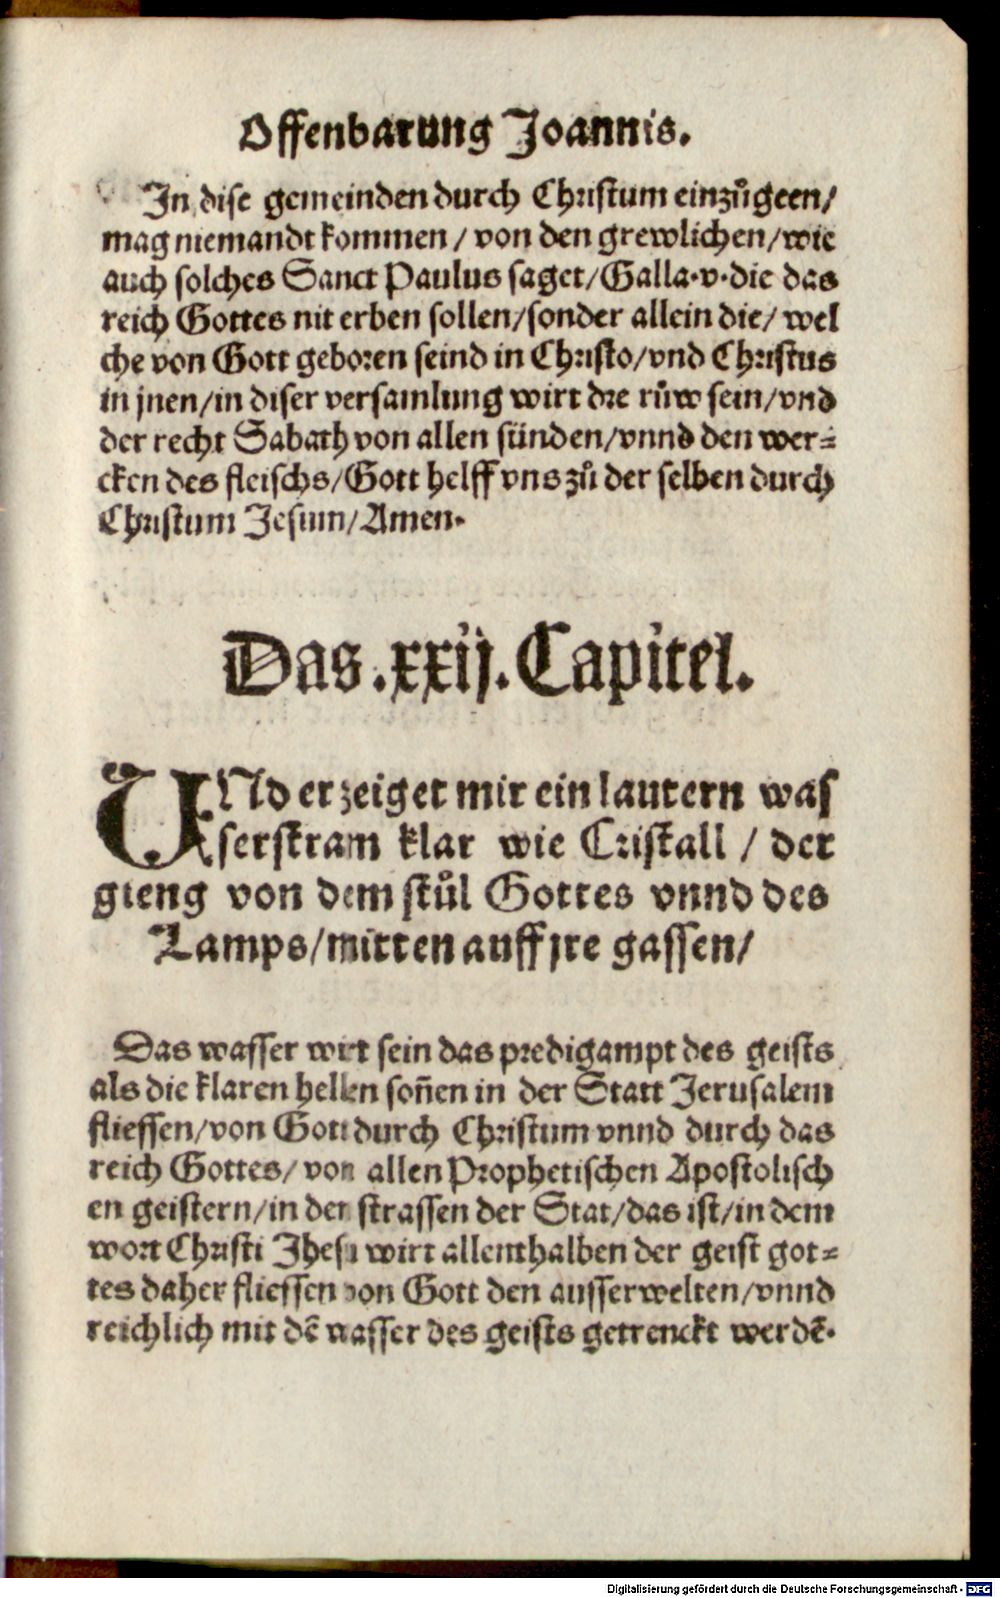 Offenbarung Joannis.
In dise gemeinden durch Christum einzůgeen/
mag niemandt kommen / von den grewlichen/wie
auch solches Sanct Paulus saget/Galla.v.die das
reich Gottes nit erben sollen/sonder allein die/ wel
che von Gott geboren seind in Christo/vnd Christus
in jnen/in diser versamlung wirt die růw sein/vnd
der recht Sabath von allen sünden/vnnd den wer⸗
cken des fleischs/Gott helff vns zů der selben durch
Christum Jesum/Amen.
Das .xxij. Capitel.
VNd er zeiget mir ein lautern was
serstram klar wie Cristall / der
gieng von dem stůl Gottes vnnd des
Lamps/mitten auff jre gassen/
Das wasser wirt sein das predigampt des geists
als die klaren hellen soñen in der Statt Jerusalem
fliessen/von Gott durch Christum vnnd durch das
reich Gottes/ von allen Prophetischen Apostolisch
en geistern/in der strassen der Stat/das ist/in dem
wort Christi Jhesu wirt allenthalben der geist got⸗
tes daher fliessen von Gott den ausserwelten/vnnd
reichlich mit dẽ wasser des geists getrenckt werdẽ.
Digitalisierung gefördert durch die Deutsche Forschungsgemeinschaft - DFG